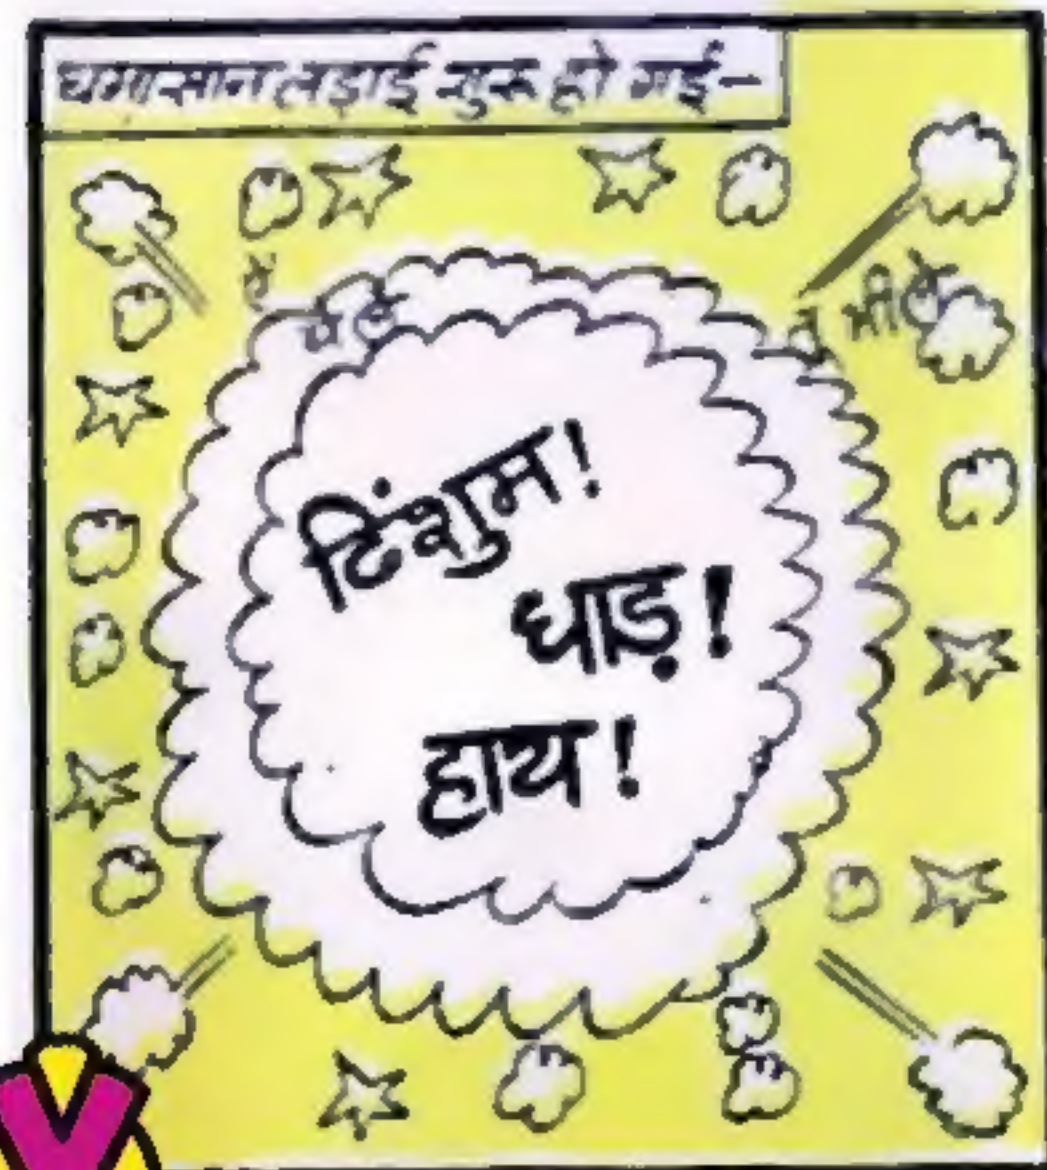 घमासान लड़ाई शुरू हो गई-
ढिंशुम!
धाड़!
हाय!